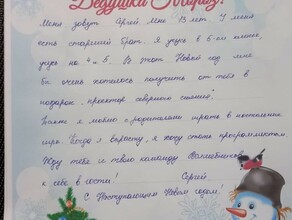 Дедушка Мороз!
Меня зовут Сергей. Мне 13 лет. У меня
есть старший брат. Я учусь в 6-ом классе,
учусь на 4 и 5. В этот Новый год мне
бы очень хотелось получить от тебя в
подарок "проектор северного сияния".
Также я люблю с родителями играть в настольные
игры. Когда я вырасту, я хочу стать программистом
Жду тебя и твою команду Волшебников
к себе в гости!
Сергей
С Наступающим Новым годом!